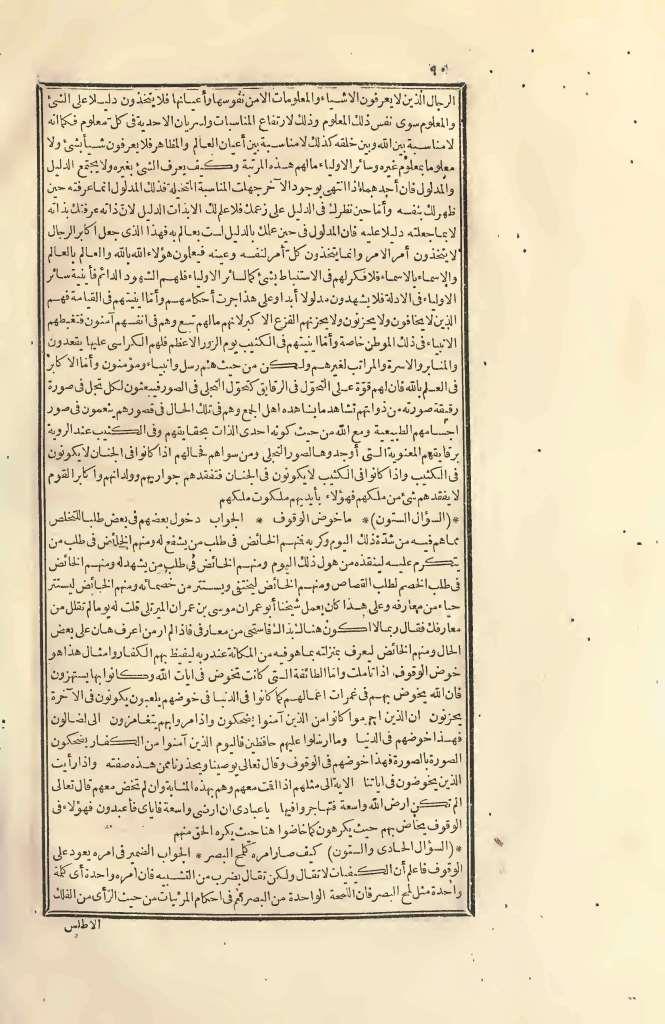 ٩٠
الرجال الذين لا يعرفون الاشياء والمعلومات الا من نفوسها وأعيانها فلا يتخذون دليلا على الشئ
والمعلوم سوى نفس ذلك المعلوم وذلك لارتفاع المناسبات ولسريان الاحدية فى كل معلوم فكما انه
لا مناسبة بين الله وبين خلقه كذلك لا مناسبة بين أعيان العالم والمظاهر فلا يعرفون شيأ بشئ ولا
معلوما بمعلوم غيره وسائر الاولياء مالهم هذه المرتبة وكيف يعرف الشئ بغيره ولا يجتمع الدليل
والمدلول فان أحدهما اذا انتهى بوجود الآخر جهات المناسبة المتخيلة فذلك المدلول انما عرفته حين
ظهر لك بنفسه وأما حين نظرك فى الدليل على زعمك فلا علم لك الا بذات الدليل لان ذاته عرفتك بذاته
لا بما جعلته دليلا عليه فان المدلول فى حين علمك بالدليل لست بعالم به فهذا الذى جعل اكابر الرجال
لا يتخذون أمر الامر وانما يتخذون كل أمر لنفسه وعينه فيعلمون هؤلاء الله بالله والعالم بالعالم
والاسماء بالاسماء فلا فكر لهم فى الاستنباط بشئ كما لسائر الاولياء فلهم الشهود الدائم فأينية سائر
الاولياء فى الادلة فلا يشهدون مدلولا أبدا وعلى هذا جرت أحكامهم وأما اينيتهم فى القيامة فهم
الذين لا يخافون ولا يحزنون ولا يحزنهم الفزع الاكبر لانهم مالهم تبع وهم فى انفسهم آمنون فتغبطهم
الانبياء فى ذلك الموطن خاصة وأما اينيتهم فى الكثيب يوم الزور الاعظم فلهم الكراسى عليها يقعدون
والمنابر والاسرة والمراتب لغيرهم ولكن من حيث هم رسل وانبياء ومؤمنون وأما الاكابر
فى العلم بالله فان لهم قوة على التحول فى الرقايق كتحول التجلى فى الصور فيبعثون لكل تجل فى صورة
رقيقة صورته من ذواتهم تشاهد ما يشاهده اهل الجمع وهم فى تلك الحال فى قصورهم ينعمون فى صور
اجسامهم الطبيعية ومع الله من حيث كونه احدى الذات بحقايقهم وفى الكثيب عند الروية
برقايقهم المعنوية التى أوجدوها لصور التجلى ومن سواهم فحالهم اذا كانوا فى الجنان لا يكونون
فى الكثيب واذا كانوا فى الكثيب لا يكونون فى الجنان فتفقدهم جواريهم وولدانهم واكابر القوم
لا يفقدهم شئ من ملكهم فهؤلاء بأيديهم ملكوت ملكهم
* (السؤال الستون) * ما خوض الوقوف * الجواب دخول بعضهم فى بعض طلبا للتخلص
مما هم فيه من شدة ذلك اليوم وكربه فمنهم الخائض فى طلب من يشفع له ومنهم الخائض فى طلب من
يتكرم عليه لينقذه من هول ذلك اليوم ومنهم الخائض فى طلب من يشهد له ومنهم الخائض
فى طلب الخصم لطلب القصاص ومنهم الخائض ليختفى ويستتر من خصمائه ومنهم الخائض ليستتر
حياء من معارفه وعلى هذا كان يعمل شيخنا أبو عمران موسى بن عمران الميرتلى قلت له يوما لم تقلل من
معارفك فقال ربما لا اكون هنالك بذاك فاستحى من معارفى فاذا لم ار من اعرف هان على بعض
الحال ومنهم الخائض ليعرف بمنزلته بما هو فيه من المكانة عند ربه ليغيظ بهم الكفار وامثال هذا هو
خوض الوقوف اذا تأملت واما الطائفة التى كانت تخوض فى ايات الله وكانوا بها يستهزون
فان الله يخوض بهم فى غمرات اعمالهم كما كانوا فى الدنيا فى خوضهم يلعبون يكونون فى الآخرة
يحزنون ان الذين اجرموا كانوا من الذين آمنوا يضحكون واذا مروا بهم يتغامزون الى لضالون
فهذا خوضهم فى الدنيا وما ارسلوا عليهم حافظين فاليوم الذين آمنوا من الكفار يضحكون
الصورة بالصورة فهذا خوضهم فى الوقوف وقال تعالى يوصينا ويحذرنا ممن هذه صفته واذا رأيت
الذين يخوضون فى اياتنا الاية الى مثلهم اذا اقت معهم وهم بهذه المثابة وان لم تخض معهم قال تعالى
الم تكن ارض الله واسعة فتهاجروا فيها يا عبادى ان ارضى واسعة فاياى فاعبدون فهؤلاء فى
الوقوف يخاض بهم حيث يكرهون كما خاضوا هنا حيث يكره الحق منهم
* (السؤال الحادى والستون) كيف صار امره كلمح البصر * الجواب الضمير فى امره يعود على
الوقوف فاعلم أن الكيفيات لا تقال ولكن تقال بضرب من التشبيه فان أمره واحدة أى كلمة
واحدة مثل لمح البصر فان اللمحة الواحدة من البصر تعم فى احكام المرئيات من حيث الرأى من الفلك
الاطلس